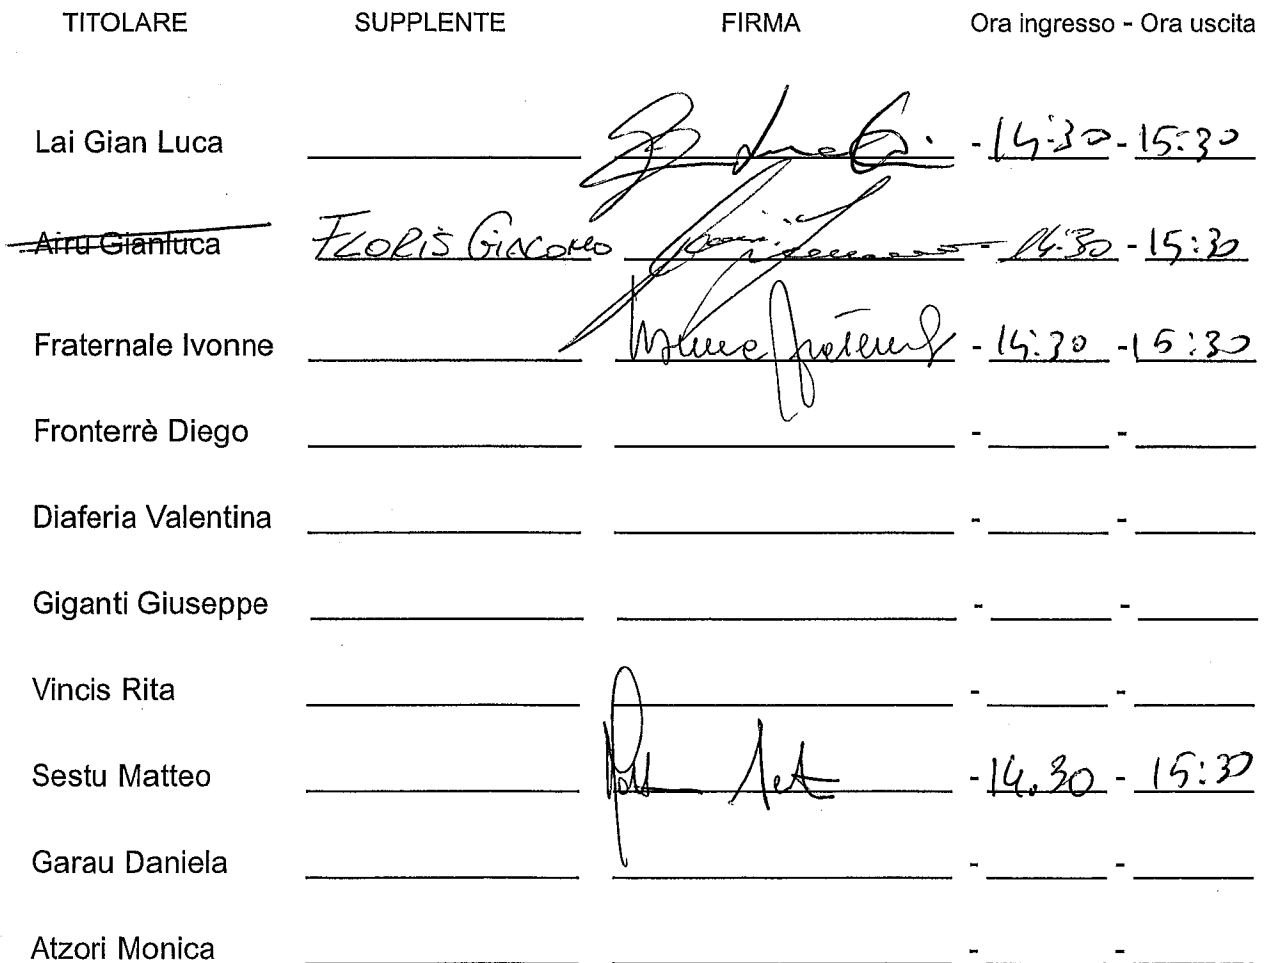 TITOLARE SUPPLENTE FIRMA Ora ingresso - Ora uscita
Lai Gian Luca - 14:30 - 15:30
Airu Gianluca FLORIS GIACOMO - 14:30 - 15:30
Fraternale Ivonne - 14:30 - 15:30
Fronterrè Diego - -
Diaferia Valentina - -
Giganti Giuseppe - -
Vincis Rita - -
Sestu Matteo - 14.30 - 15:30
Garau Daniela - -
Atzori Monica - -